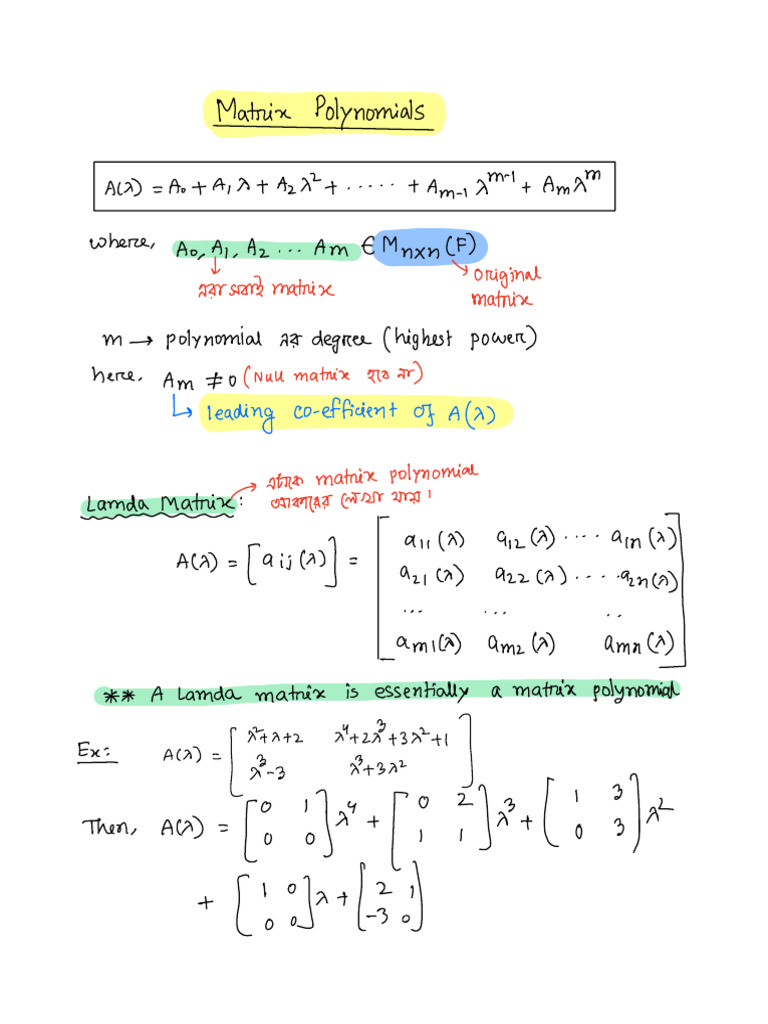 Matrix Polynomials
A(λ) = A₀ + A₁ λ + A₂ λ² + ..... + Aₘ₋₁ λᵐ⁻¹ + Aₘ λᵐ
where, A₀, A₁, A₂ ... Aₘ ∈ Mₙₓₙ (F)
এরা সবাই matrix
original
matrix
m → polynomial এর degree (highest power)
here, Aₘ ≠ 0 (Null matrix হবে না)
leading co-efficient of A(λ)
Lamda Matrix:
এটাকে matrix polynomial
আকারে লেখা যায়।
A(λ) = [aij(λ)] = [a₁₁(λ) a₁₂(λ) .... a₁ₙ(λ)
a₂₁(λ) a₂₂(λ) ..... a₂ₙ(λ)
... ... ..
aₘ₁(λ) aₘ₂(λ) aₘₙ(λ)]
** A Lamda matrix is essentially a matrix polynomial
Ex: A(λ) = [λ²+λ+2 λ⁴+2λ³+3λ²+1
λ³-3 λ³+3λ²]
Then, A(λ) = [0 1
0 0] λ⁴ + [0 2
1 1] λ³ + [1 3
0 3] λ²
+ [1 0
0 0] λ + [2 1
-3 0]